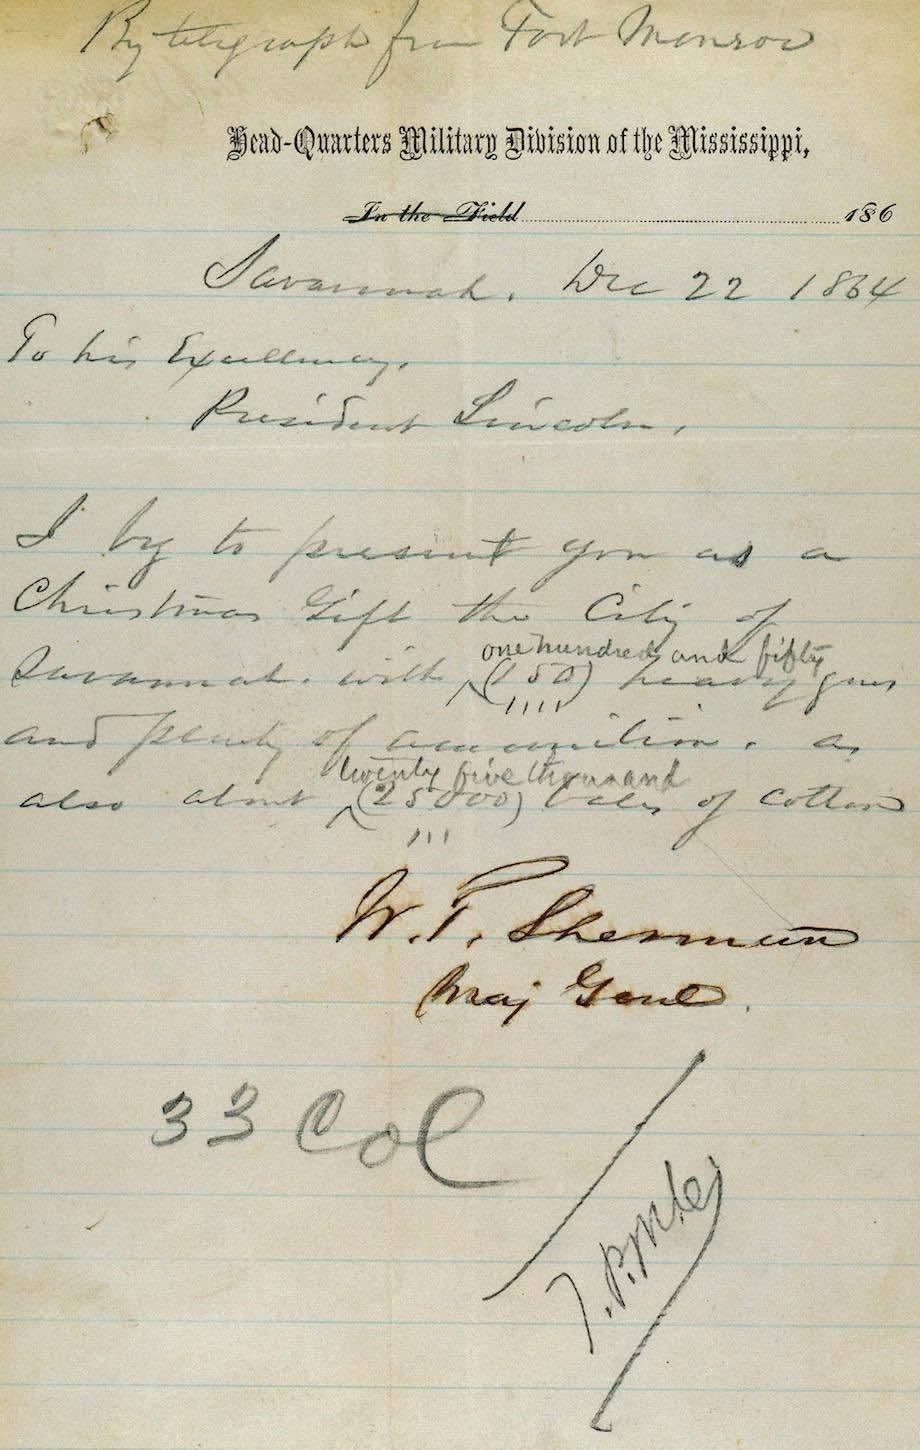 By telegraph from Fort Monroe
Head-Quarters Military Division of the Mississippi,
In the Field 186
Savannah. Dec 22 1864
To his Excellency,
President Lincoln,
I beg to present you as a
Christmas Gift the City of
one hundred and fifty
Savannah. with (150) heavy guns
and plenty of ammunition. as
twenty five thousand
also about (25000) bales of cotton
W. T. Sherman
Maj Genl.
33 Col